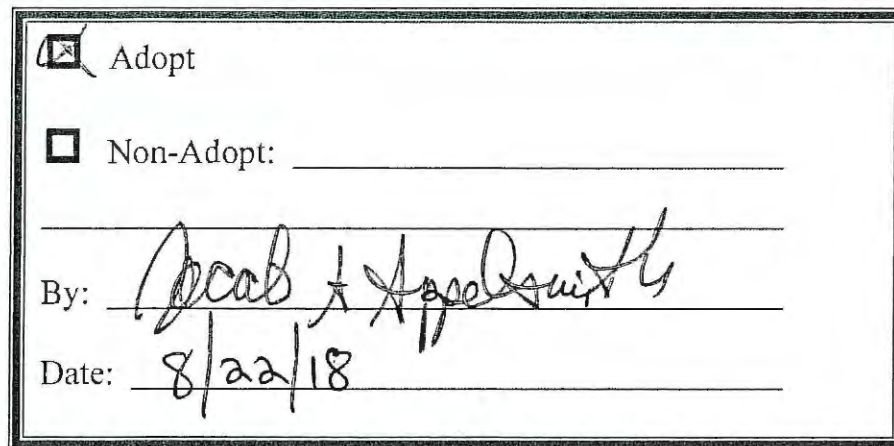 Adopt
Non-Adopt:
By: Jacob A Appelsmith
Date: 8/22/18